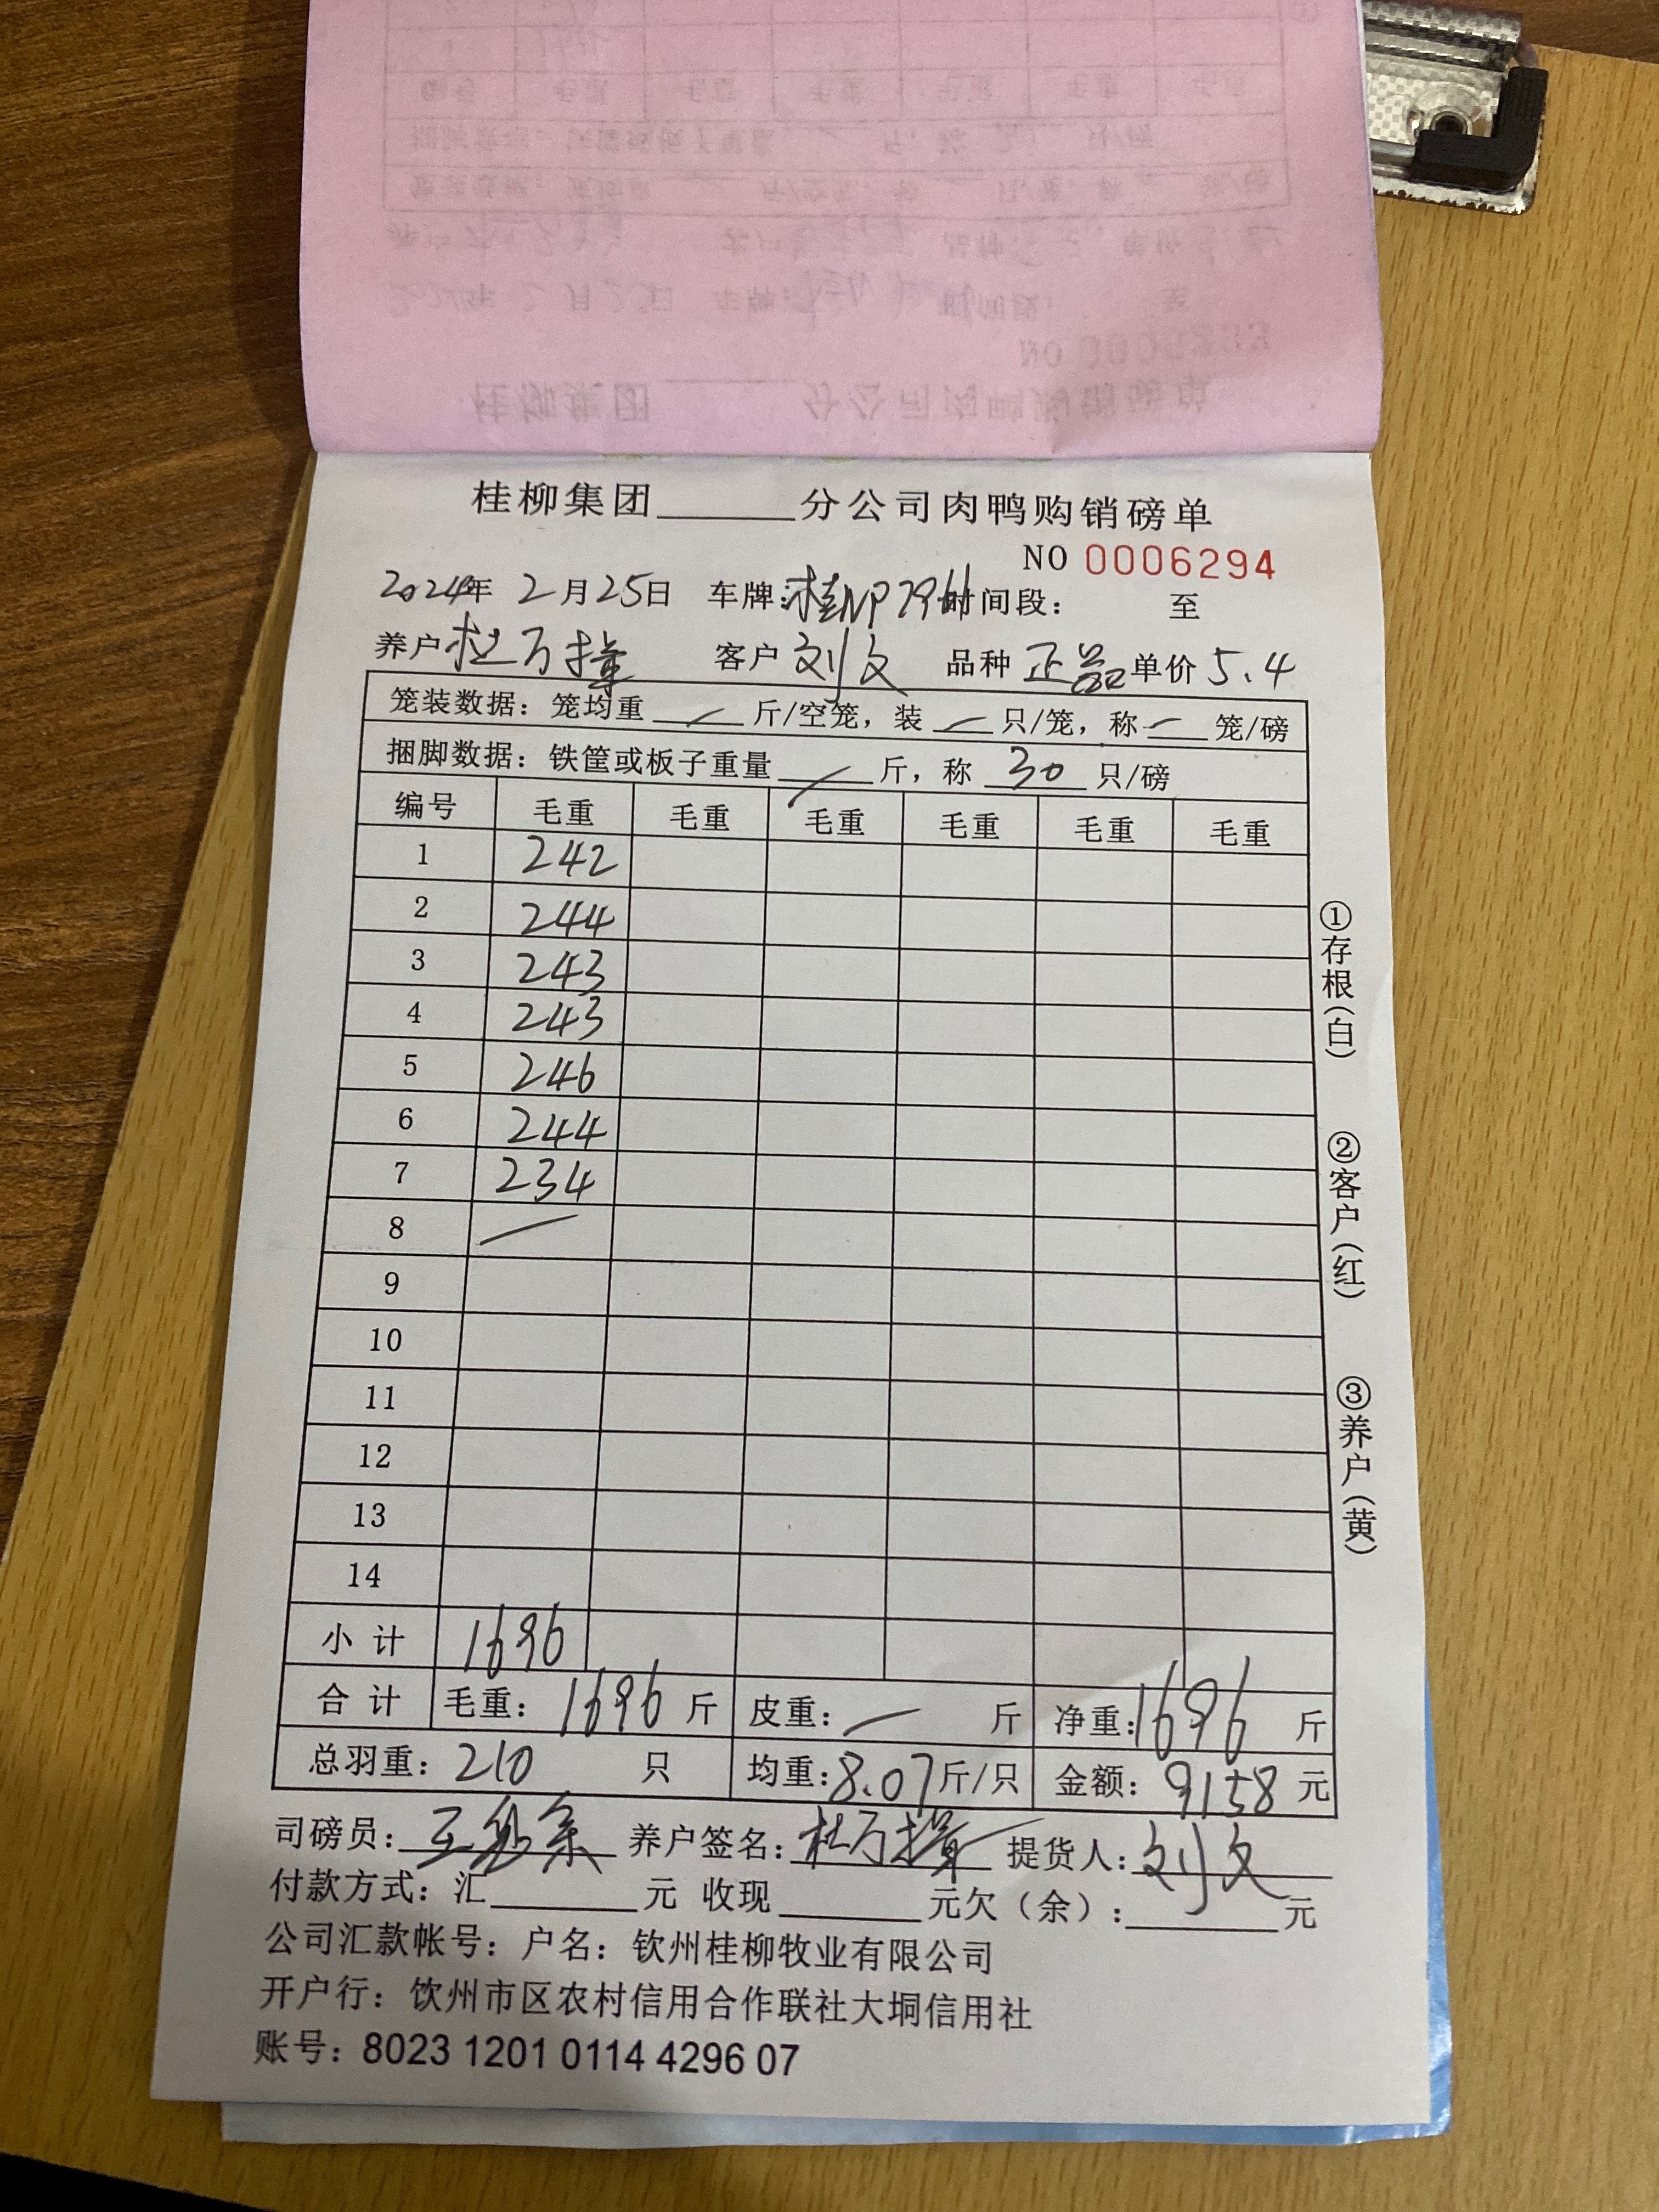 桂柳集团______分公司肉鸭购销磅单
NO 0006294
2024年 2月25日 车牌:桂NP79 时间段: 至
养户 杜万 客户 刘文 品种 正品 单价 5.4
笼装数据: 笼均重 / 斤/空笼, 装 / 只/笼, 称 / 笼/磅
捆脚数据: 铁筐或板子重量 / 斤, 称 30 只/磅
编号 毛重 毛重 毛重 毛重 毛重 毛重
1 242
2 244
3 243
4 243
5 246
6 244
7 234
8 /
9
10
11
12
13
14
小计 1696
合计 毛重: 1696 斤 皮重: / 斤 净重: 1696 斤
总羽重: 210 只 均重: 8.07 斤/只 金额: 9158 元
司磅员: 养户签名: 杜万 提货人: 刘文
付款方式: 汇______元 收现______元欠(余):______元
公司汇款帐号: 户名: 钦州桂柳牧业有限公司
开户行: 饮州市区农村信用合作联社大垌信用社
账号: 8023 1201 0114 4296 07
①存根(白)
②客户(红)
③养户(黄)